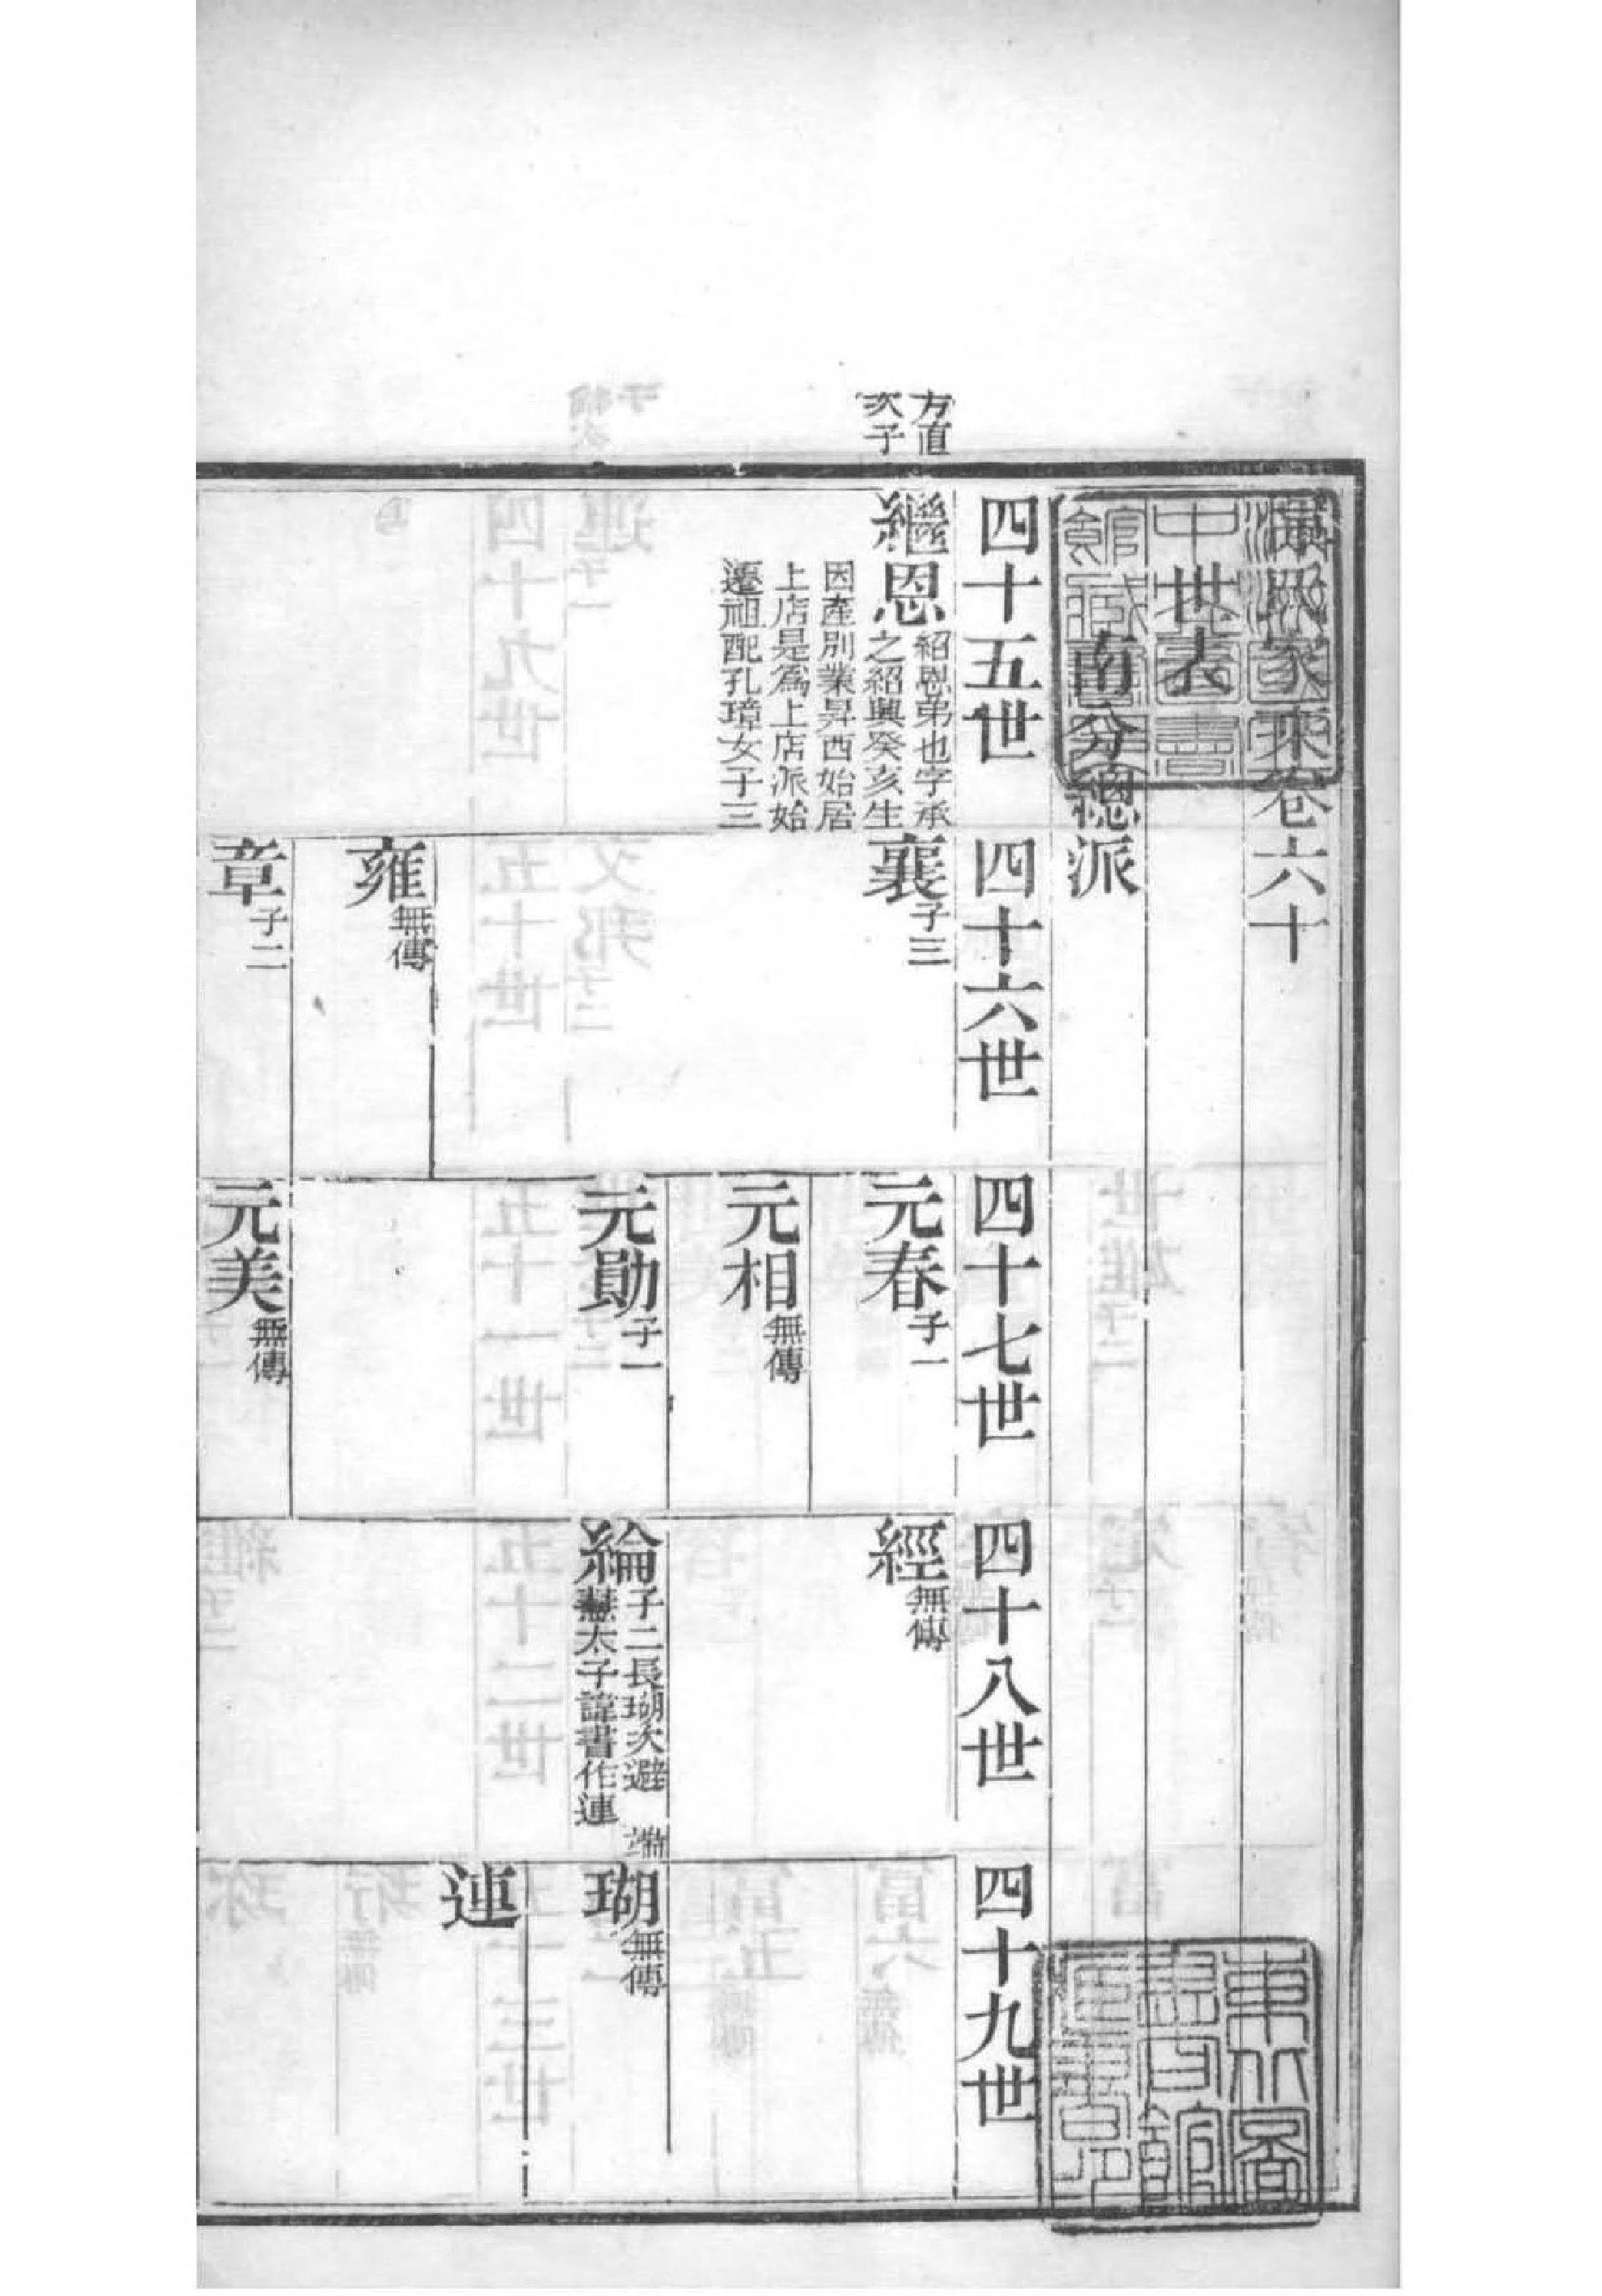 漢熙家乘卷六十
中世表
南分總派
四十五世
四十六世
四十七世
四十八世
四十九世
方直
次子
繼恩
紹恩弟也字承
之紹興癸亥生
因產別業昇西始居
上店是爲上店派始
遷祖配孔璋女子三
襄
子三
元春
子一
經
無傳
元相
無傳
元勛
子一
綸
子二長瑚次避 端
慧太子諱書作連
瑚
無傳
連
雍
無傳
章
子二
元美
無傳